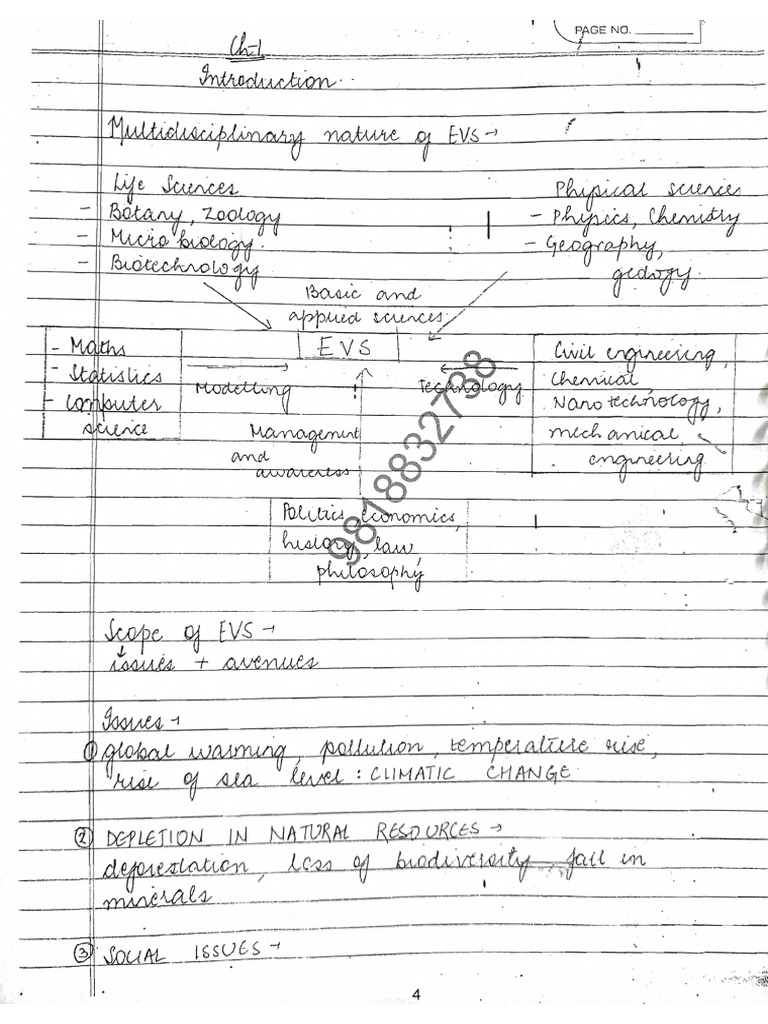 PAGE NO.
Ch-1
Introduction
Multidisciplinary nature of EVS →
Life Sciences
- Botany, Zoology
- Micro biology.
- Biotechnology
Physical sciences
- Physics, Chemistry
- Geography,
geology.
Basic and
applied sciences
EVS
- Maths
- Statistics
- Computer
science
Modelling
Technology
Civil engineering,
chemical,
Nanotechnology,
mechanical
engineering
Management
and
awareness
Politics, economics,
history, law,
philosophy
9818832738
Scope of EVS →
issues + avenues
Issues →
① global warming, pollution, temperature rise,
rise of sea level : CLIMATIC CHANGE
② DEPLETION IN NATURAL RESOURCES →
deforestation, loss of biodiversity, fall in
minerals
③ SOCIAL ISSUES →
4